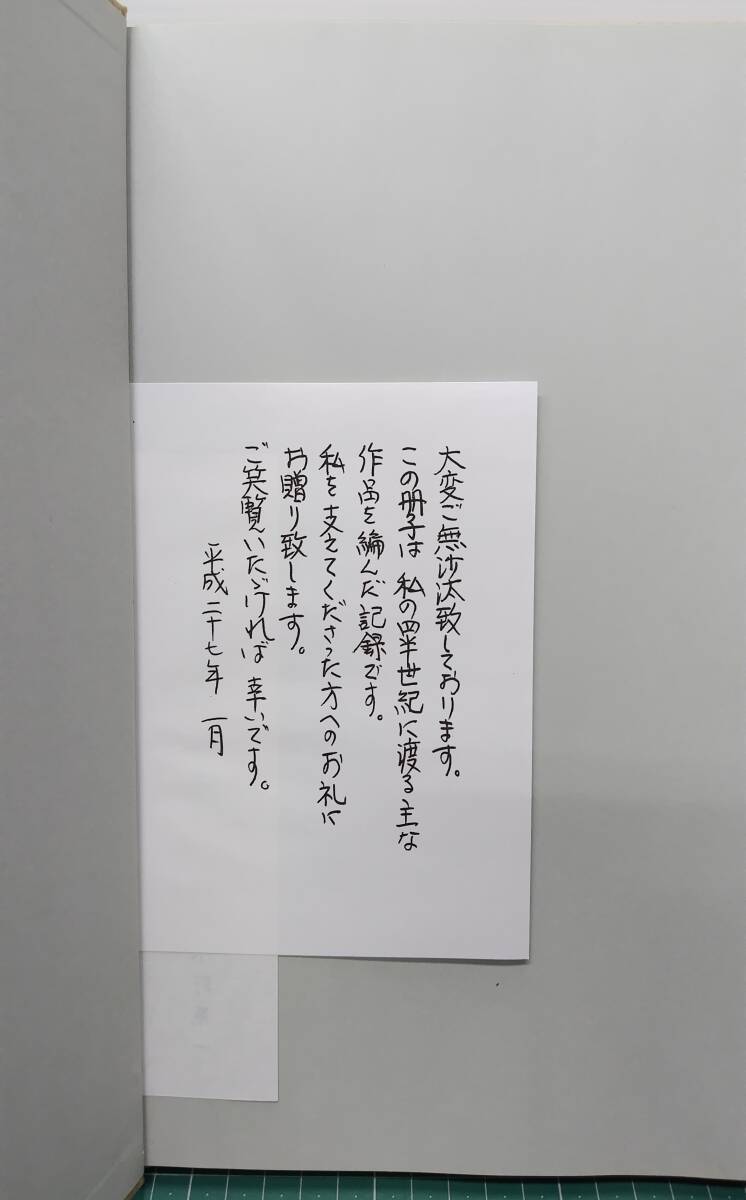 大変ご無沙汰致しております。
この冊子は 私の四半世紀に渡る主な
作品を編んだ記録です。
私を支えてくださった方へのお礼に
お贈り致します。
ご笑覧いただければ 幸いです。
平成二十七年 一月